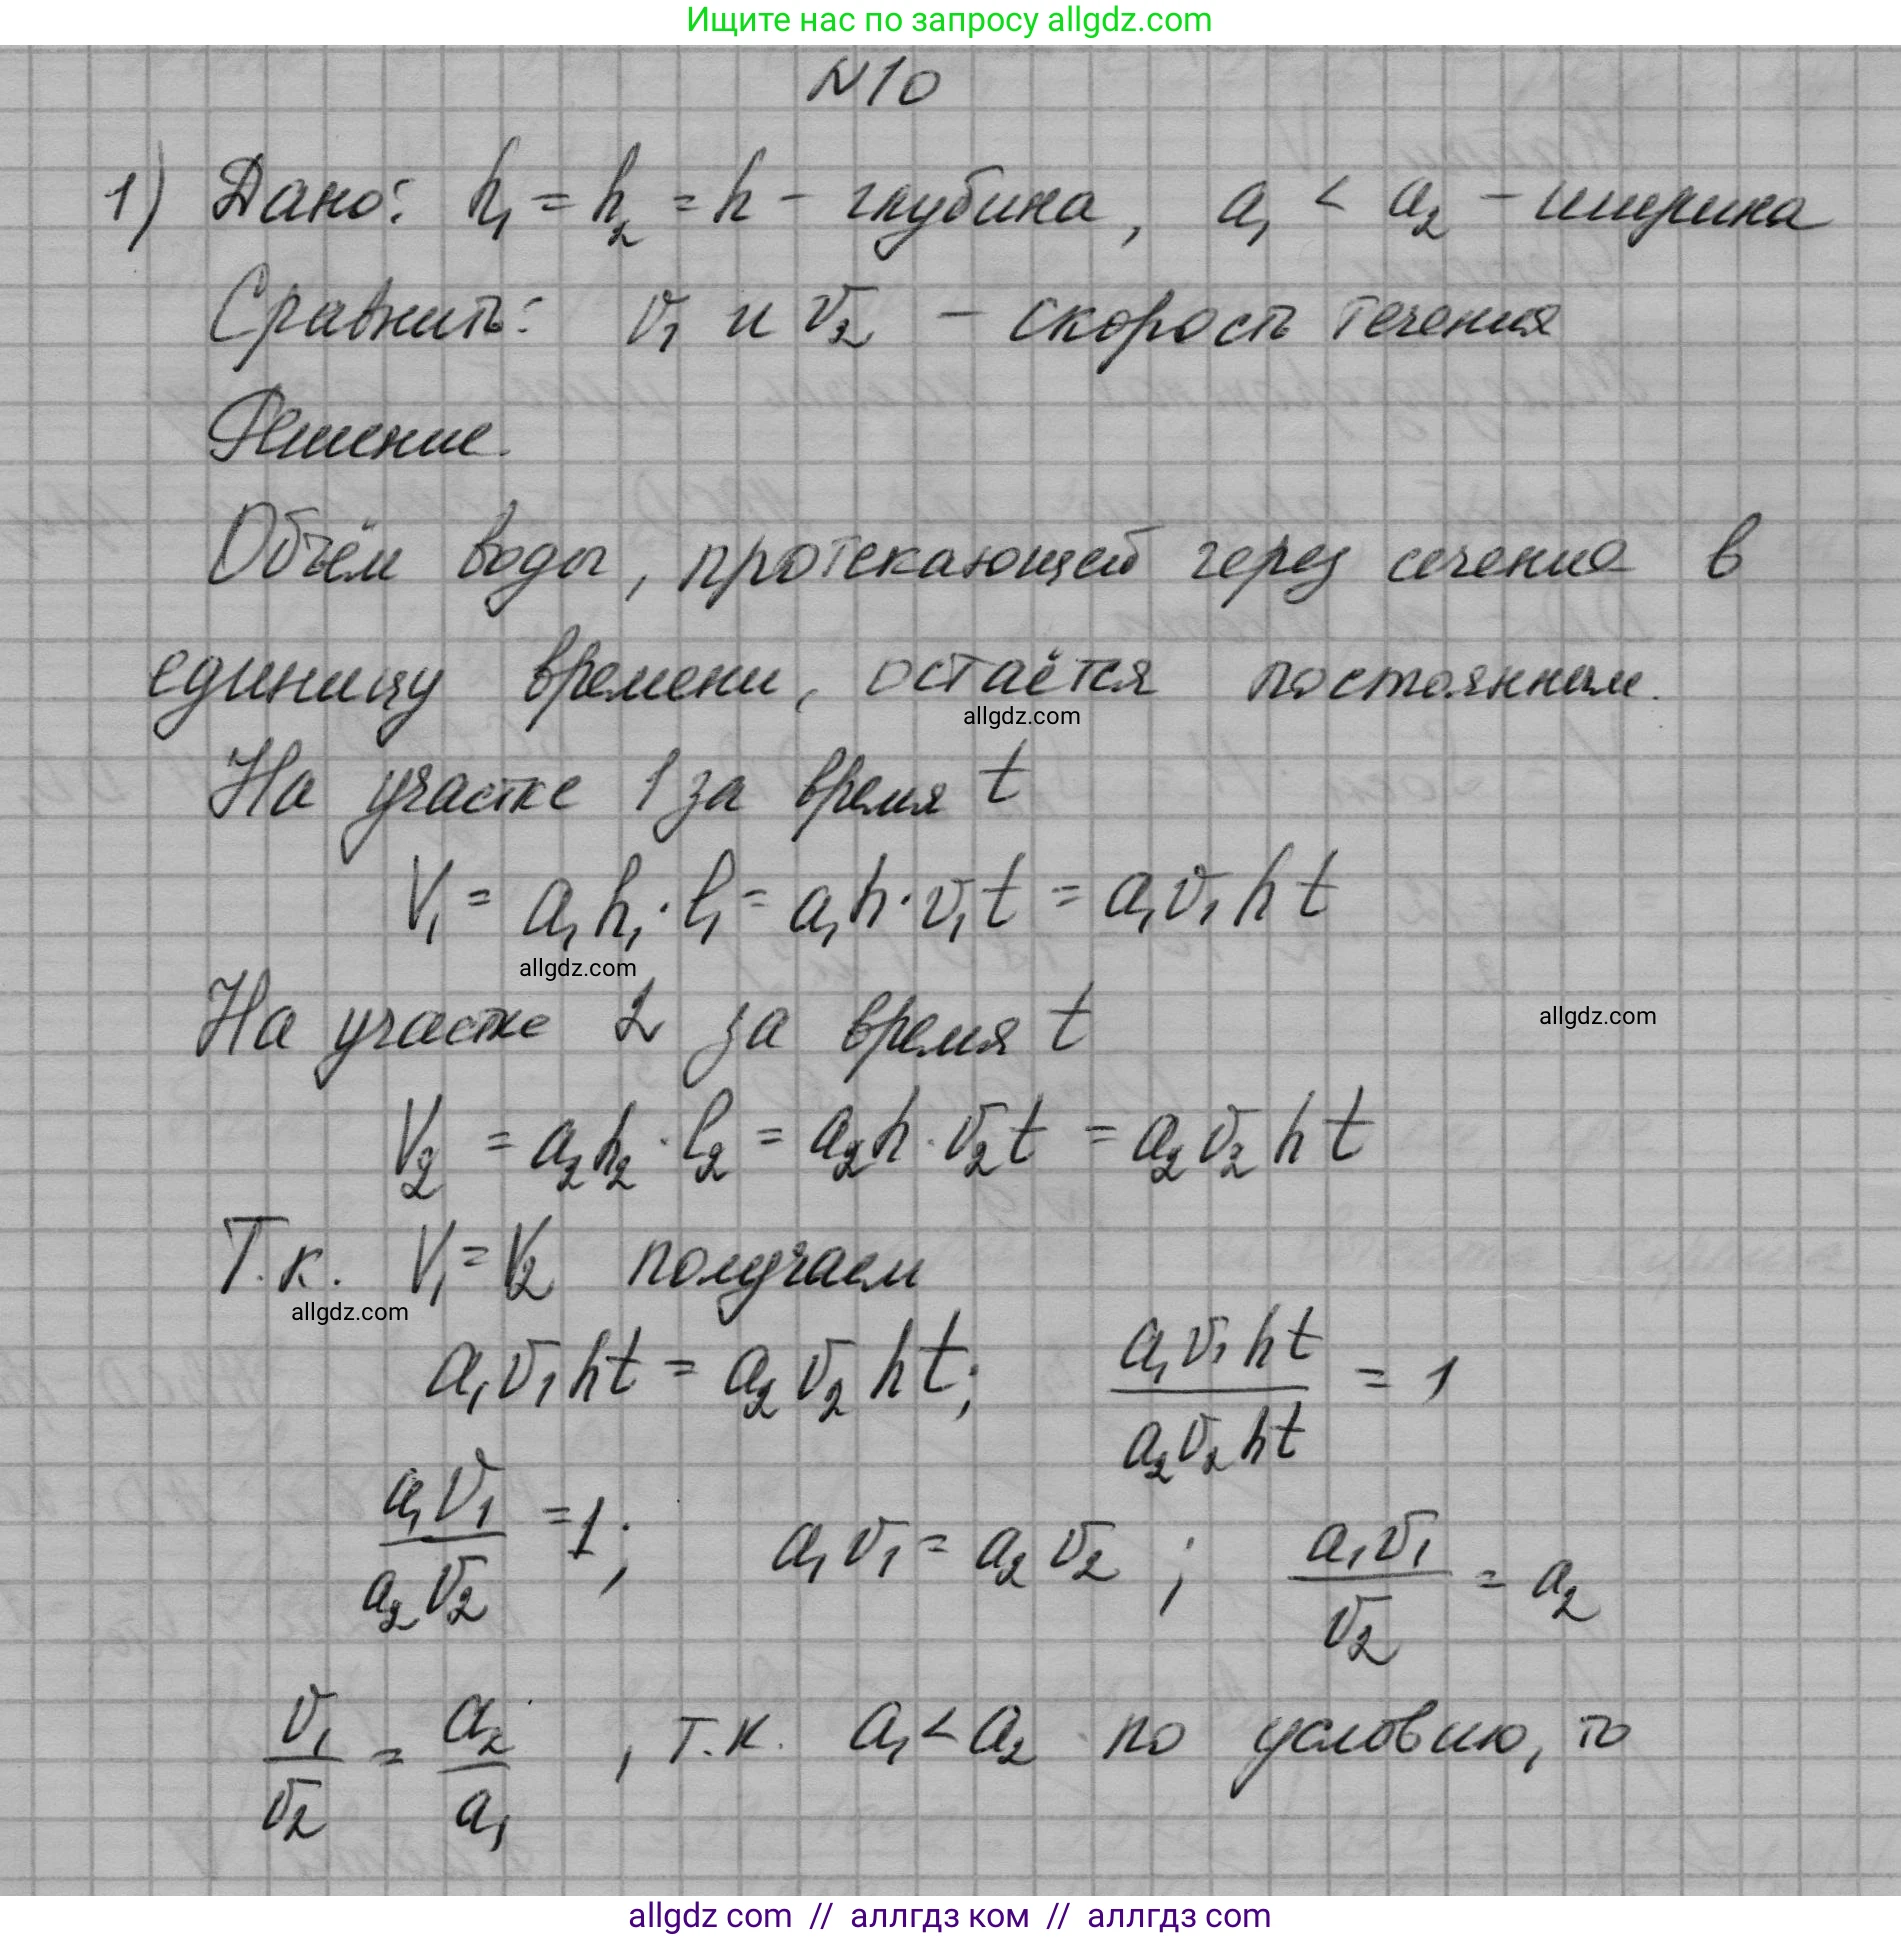 Ищите нас по запросу allgdz.com
N10
1) Дано: h₁ = h₂ = h - глубина, a₁ < a₂ - ширина
Сравнить: v₁ и v₂ - скорость течения
Решение.
Объём воды, протекающей через сечение в
единицу времени, остаётся постоянным.
allgdz.com
На участке 1 за время t
V₁ = a₁h₁·l₁ = a₁h·v₁t = a₁v₁ht
allgdz.com
На участке 2 за время t
allgdz.com
V₂ = a₂h₂·l₂ = a₂h·v₂t = a₂v₂ht
Т.к. V₁ = V₂ получаем
allgdz.com
a₁v₁ht = a₂v₂ht; a₁v₁ht/a₂v₂ht = 1
a₁v₁/a₂v₂ = 1; a₁v₁ = a₂v₂; a₁v₁/v₂ = a₂
v₁/v₂ = a₂/a₁, т.к. a₁ < a₂ по условию, то
allgdz com // аллгдз ком // аллгдз com